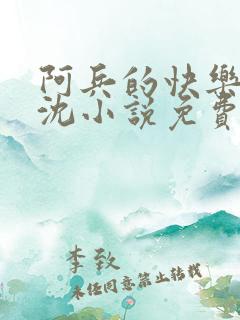 阿兵的快樂
沈小說免費
李致
未經同意禁止轉載